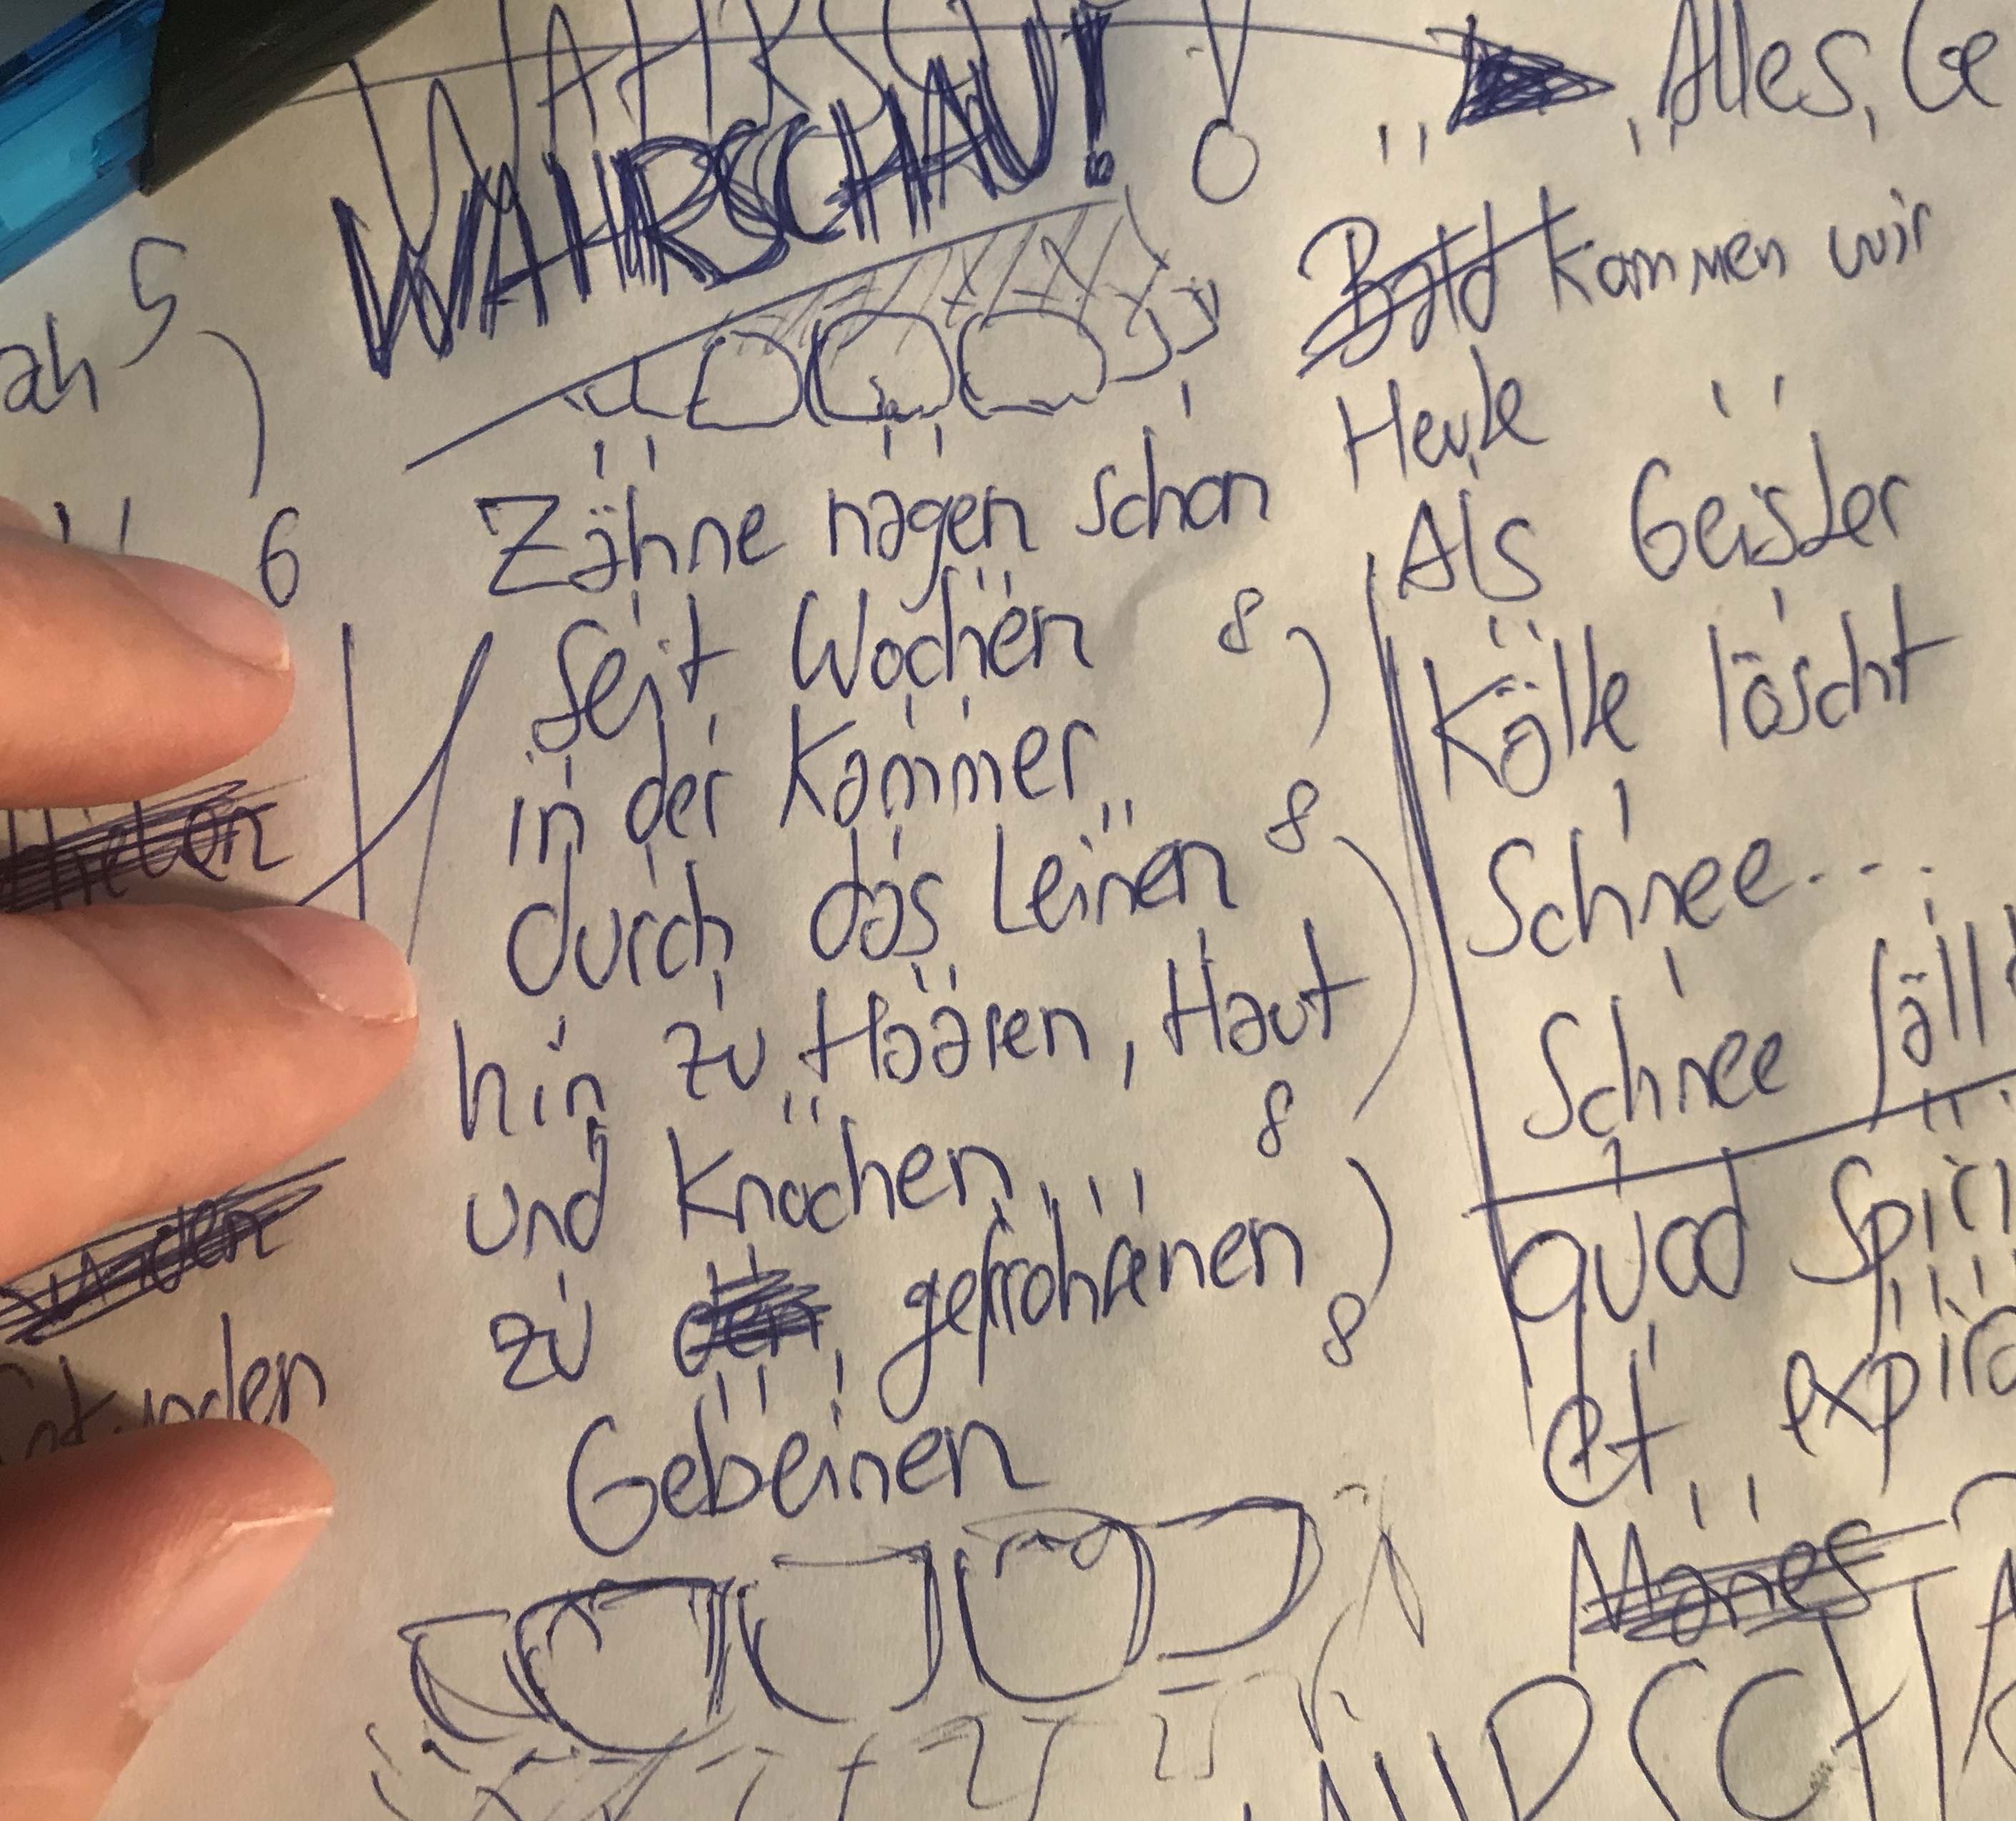 WAHRSCHAU!
WAHRSCHAU!
ah 5
6
Zähne nagen schon
seit Wochen 8
in der Kammer
durch das Leinen 8
hin zu Haaren, Haut
und Knochen 8
zu den gefrohrenen
Gebeinen 8
unden
unden
Alles, Ge
Bald kommen wir
Heute
Als Geister
Kälte löscht
Schnee...
Schnee fällt
quod spiri
et expira
Manes